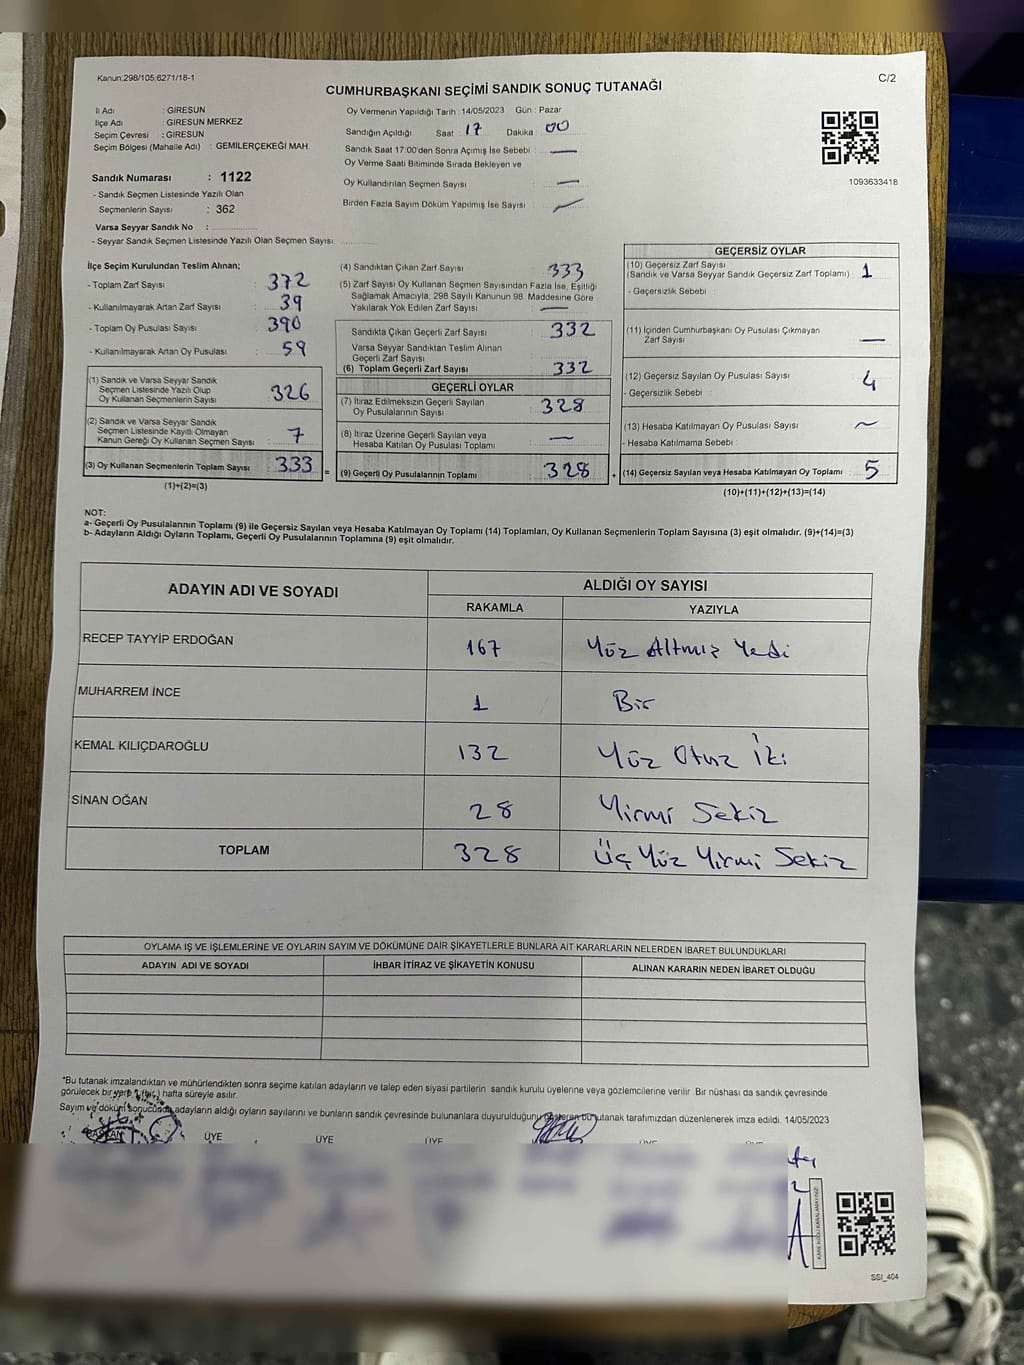 Kanun:298/105.6271/18-1
C/2
CUMHURBAŞKANI SEÇİMİ SANDIK SONUÇ TUTANAĞI
İl Adı : GİRESUN
İlçe Adı : GİRESUN MERKEZ
Seçim Çevresi : GİRESUN
Seçim Bölgesi (Mahalle Adı) : GEMİLERÇEKEĞİ MAH.
Sandık Numarası : 1122
- Sandık Seçmen Listesinde Yazılı Olan
Seçmenlerin Sayısı : 362
Varsa Seyyar Sandık No :
- Seyyar Sandık Seçmen Listesinde Yazılı Olan Seçmen Sayısı
Oy Vermenin Yapıldığı Tarih : 14/05/2023 Gün : Pazar
Sandığın Açıldığı Saat 17 Dakika 00
Sandık Saat 17:00'den Sonra Açımış İse Sebebi : —
Oy Verme Saati Bitiminde Sırada Bekleyen ve
Oy Kullandırılan Seçmen Sayısı : —
Birden Fazla Sayım Döküm Yapılmış İse Sayısı : —
1093633418
İlçe Seçim Kurulundan Teslim Alınan;
- Toplam Zarf Sayısı : 372
- Kullanılmayarak Artan Zarf Sayısı : 39
- Toplam Oy Pusulası Sayısı : 390
- Kullanılmayarak Artan Oy Pusulası : 59
(1) Sandık ve Varsa Seyyar Sandık
Seçmen Listesinde Yazılı Olup
Oy Kullanan Seçmenlerin Sayısı : 326
(2) Sandık ve Varsa Seyyar Sandık
Seçmen Listesinde Kayıtlı Olmayan
Kanun Gereği Oy Kullanan Seçmen Sayısı : 7
(3) Oy Kullanan Seçmenlerin Toplam Sayısı : 333
(1)+(2)=(3)
(4) Sandıktan Çıkan Zarf Sayısı : 333
(5) Zarf Sayısı Oy Kullanan Seçmen Sayısından Fazla İse, Eşitliği
Sağlamak Amacıyla, 298 Sayılı Kanunun 98. Maddesine Göre
Yakılarak Yok Edilen Zarf Sayısı : —
Sandıkta Çıkan Geçerli Zarf Sayısı : 332
Varsa Seyyar Sandıktan Teslim Alınan
Geçerli Zarf Sayısı
(6) Toplam Geçerli Zarf Sayısı : 332
GEÇERLİ OYLAR
(7) İtiraz Edilmeksizin Geçerli Sayılan
Oy Pusulalarının Sayısı : 328
(8) İtiraz Üzerine Geçerli Sayılan veya
Hesaba Katılan Oy Pusulası Toplamı : —
= (9) Geçerli Oy Pusulalarının Toplamı : 328
GEÇERSİZ OYLAR
(10) Geçersiz Zarf Sayısı
(Sandık ve Varsa Seyyar Sandık Geçersiz Zarf Toplamı) : 1
- Geçersizlik Sebebi :
(11) İçinden Cumhurbaşkanı Oy Pusulası Çıkmayan
Zarf Sayısı : —
(12) Geçersiz Sayılan Oy Pusulası Sayısı : 4
- Geçersizlik Sebebi :
(13) Hesaba Katılmayan Oy Pusulası Sayısı : ~
- Hesaba Katılmama Sebebi :
+ (14) Geçersiz Sayılan veya Hesaba Katılmayan Oy Toplamı : 5
(10)+(11)+(12)+(13)=(14)
NOT:
a- Geçerli Oy Pusulalarının Toplamı (9) ile Geçersiz Sayılan veya Hesaba Katılmayan Oy Toplamı (14) Toplamları, Oy Kullanan Seçmenlerin Toplam Sayısına (3) eşit olmalıdır. (9)+(14)=(3)
b- Adayların Aldığı Oyların Toplamı, Geçerli Oy Pusulalarının Toplamına (9) eşit olmalıdır.
ADAYIN ADI VE SOYADI
ALDIĞI OY SAYISI
RAKAMLA YAZIYLA
RECEP TAYYİP ERDOĞAN 167 Yüz Altmış Yedi
MUHARREM İNCE 1 Bir
KEMAL KILIÇDAROĞLU 132 Yüz Otuz İki
SİNAN OĞAN 28 Yirmi Sekiz
TOPLAM 328 Üç Yüz Yirmi Sekiz
OYLAMA İŞ VE İŞLEMLERİNE VE OYLARIN SAYIM VE DÖKÜMÜNE DAİR ŞİKAYETLERLE BUNLARA AİT KARARLARIN NELERDEN İBARET BULUNDUKLARI
ADAYIN ADI VE SOYADI İHBAR İTİRAZ VE ŞİKAYETİN KONUSU ALINAN KARARIN NEDEN İBARET OLDUĞU
*Bu tutanak imzalandıktan ve mühürlendikten sonra seçime katılan adayların ve talep eden siyasi partilerin sandık kurulu üyelerine veya gözlemcilerine verilir. Bir nüshası da sandık çevresinde
görülecek bir yere 1 (bir) hafta süreyle asılır.
Sayım ve döküm sonucunda adayların aldığı oyların sayılarını ve bunların sandık çevresinde bulunanlara duyurulduğunu gösteren bu tutanak tarafımızdan düzenlenerek imza edildi. 14/05/2023
BAŞKAN ÜYE ÜYE ÜYE ÜYE ÜYE
KARE KODU KARALAMAYINIZ!
SSI_404